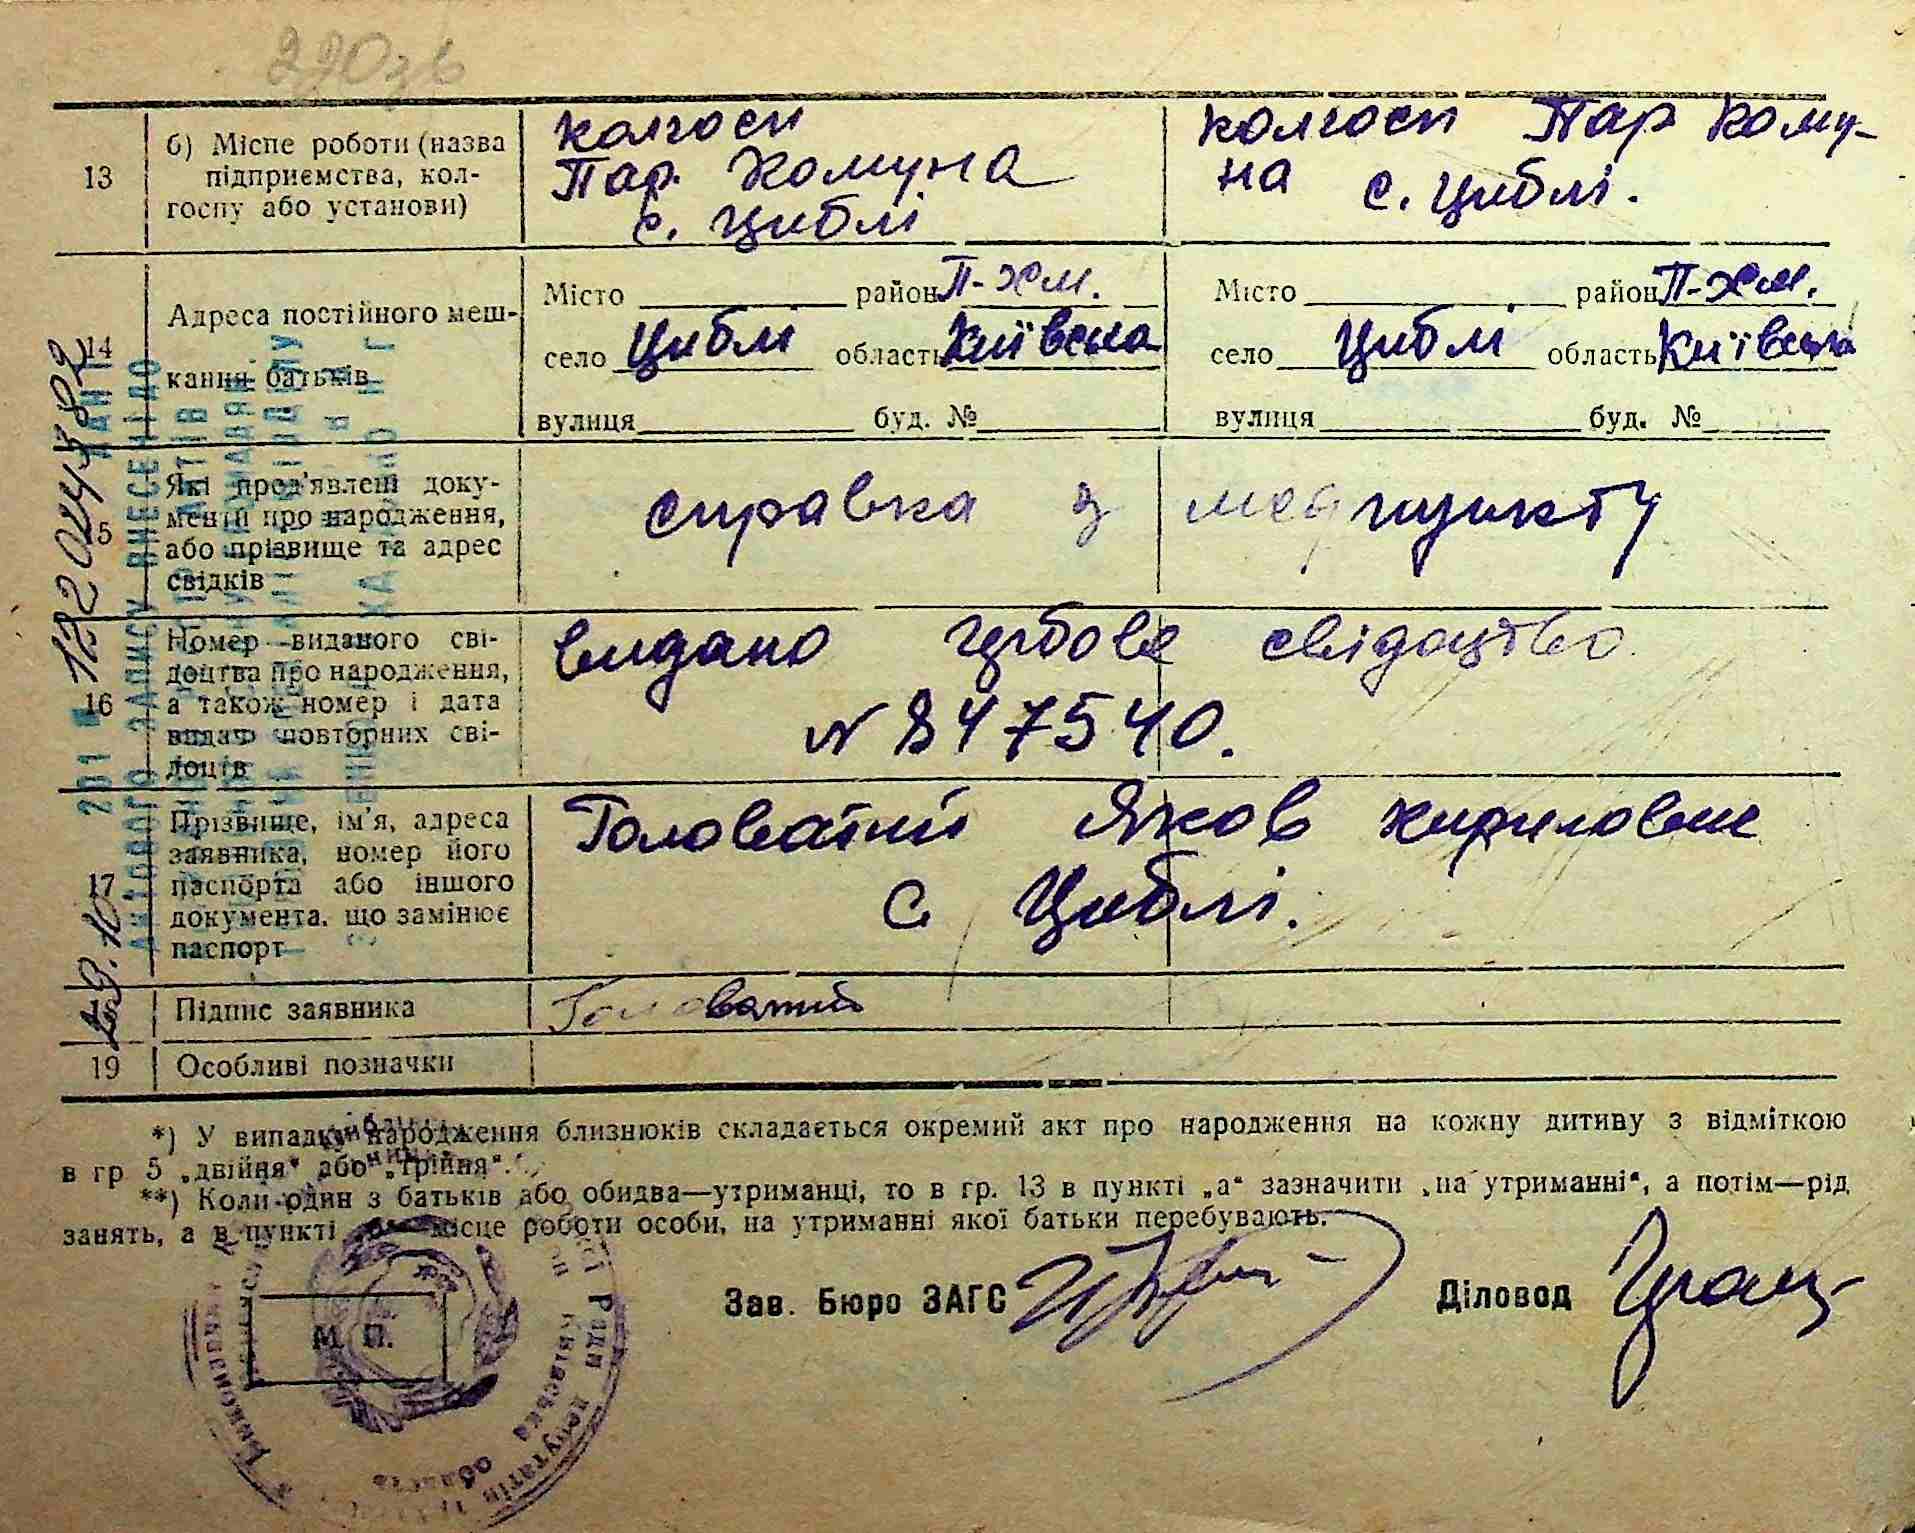 220зв
13
б) Місце роботи (назва підприємства, кол-
госпу або установи)
колгосп
Пар. Комуна
с. Циблі
колгосп Пар Кому-
на с. Циблі.
14
Адреса постійного меш-
кання батьків
Місто район П-Хм.
село Циблі область Київська
вулиця буд. №
Місто район П-Хм.
село Циблі область Київська
вулиця буд. №
15
Які пред'явлені доку-
менти про народження,
або прізвище та адрес
свідків
справка з медпункту
16
Номер виданого сві-
доцтва про народження,
а також номер і дата
видачі повторних сві-
доцтв
видано гербове свідоцтво
N 847540.
17
Прізвище, ім'я, адреса
заявника, номер його
паспорта або іншого
документа, що замінює
паспорт
Головатий Яков Кирилович
с Циблі.
Підпис заявника
Головатий
19
Особливі позначки
*) У випадку народження близнюків складається окремий акт про народження на кожну дитину з відміткою
в гр 5 „двійня" або „трійня".
**) Коли один з батьків або обидва—утриманці, то в гр. 13 в пункті „а" зазначити „на утриманні", а потім—рід
занять, а в пункті місце роботи особи, на утриманні якої батьки перебувають.
Зав. Бюро ЗАГС
Діловод
М. П.
Київська область